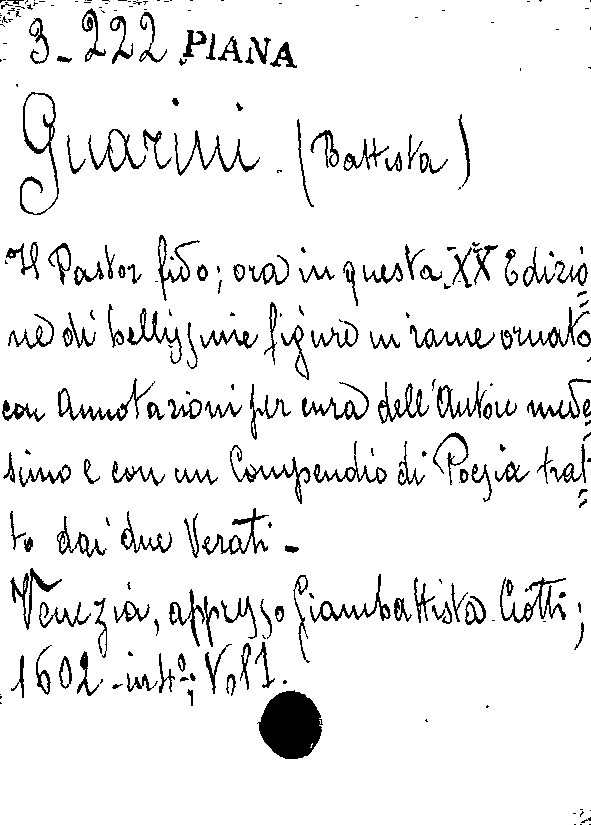 3-222 PIANA
Guarini (Battista)
Il Pastor fido; ora in questa XXª Edizio=
ne di bellissime figure in rame ornato,
con Annotazioni per cura dell'Autore mede=
simo e con un Compendio di Poesia trat=
to dai due Verati -
Venezia, appresso Giambattista Ciotti;
1602 - in 4º; Vol 1.